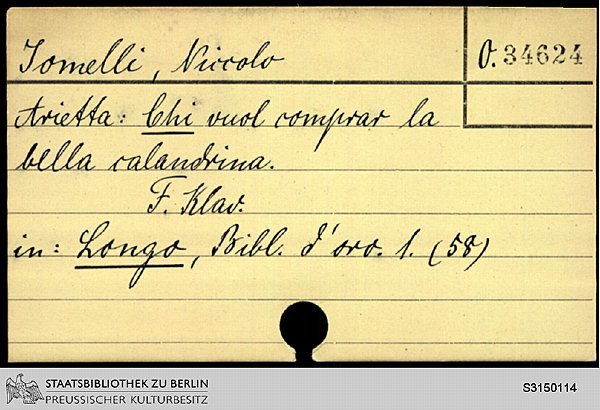 Jomelli, Niccolo
O. 34624
Arietta: Chi vuol comprar la
bella calandrina.
F. Klav.
in: Longo, Bibl. d'oro. 1. (58)
STAATSBIBLIOTHEK ZU BERLIN
PREUSSISCHER KULTURBESITZ
S3150114